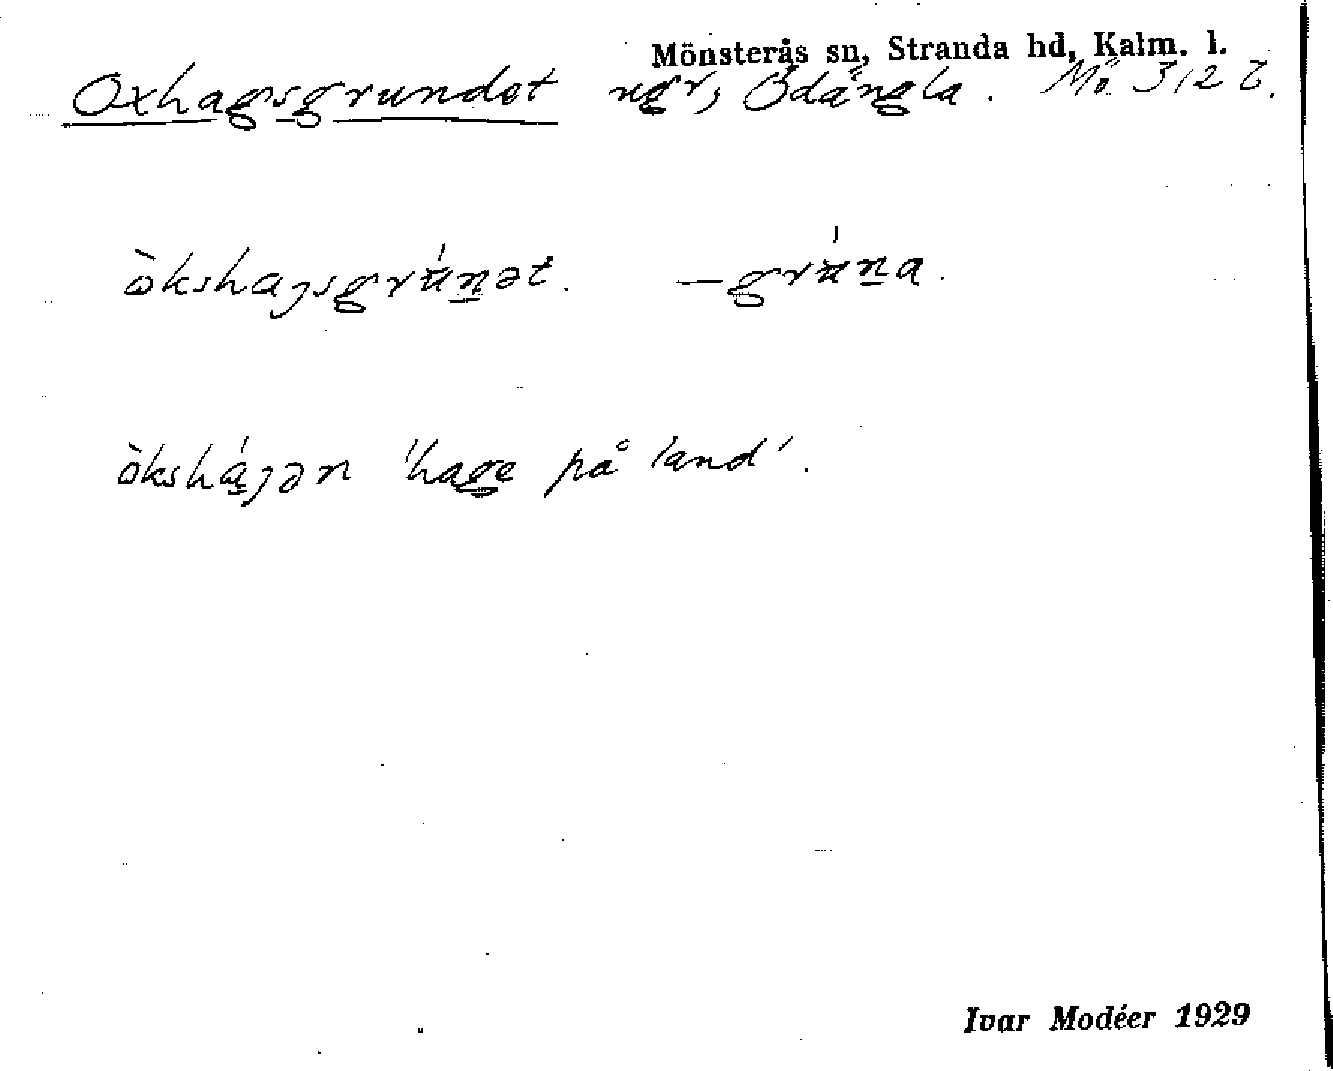 Mönsterås sn, Stranda hd, Kalm. l.
Oxhagsgrundet ugr, Ödängla. Mö. 312 b.
òkshaɡsgrú̵n̲ət. –grú̵n̲a.
òkshá̱ɡən 'hage på land'.
Ivar Modéer 1929